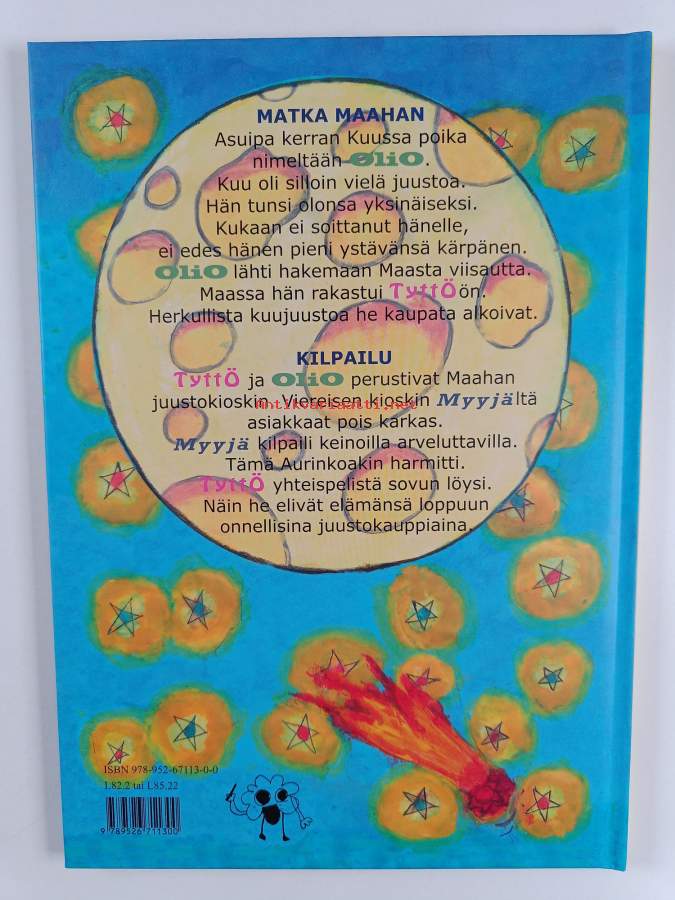 MATKA MAAHAN
Asuipa kerran Kuussa poika
nimeltään OliO.
Kuu oli silloin vielä juustoa.
Hän tunsi olonsa yksinäiseksi.
Kukaan ei soittanut hänelle,
ei edes hänen pieni ystävänsä kärpänen.
OliO lähti hakemaan Maasta viisautta.
Maassa hän rakastui TyttÖön.
Herkullista kuujuustoa he kaupata alkoivat.
KILPAILU
TyttÖ ja OliO perustivat Maahan
juustokioskin. Viereisen kioskin Myyjältä
antikvariaatti.net
asiakkaat pois karkas.
Myyjä kilpaili keinoilla arveluttavilla.
Tämä Aurinkoakin harmitti.
TyttÖ yhteispelistä sovun löysi.
Näin he elivät elämänsä loppuun
onnellisina juustokauppiaina.
ISBN 978-952-67113-0-0
L82.2 tai L85.22
9 789526 711300